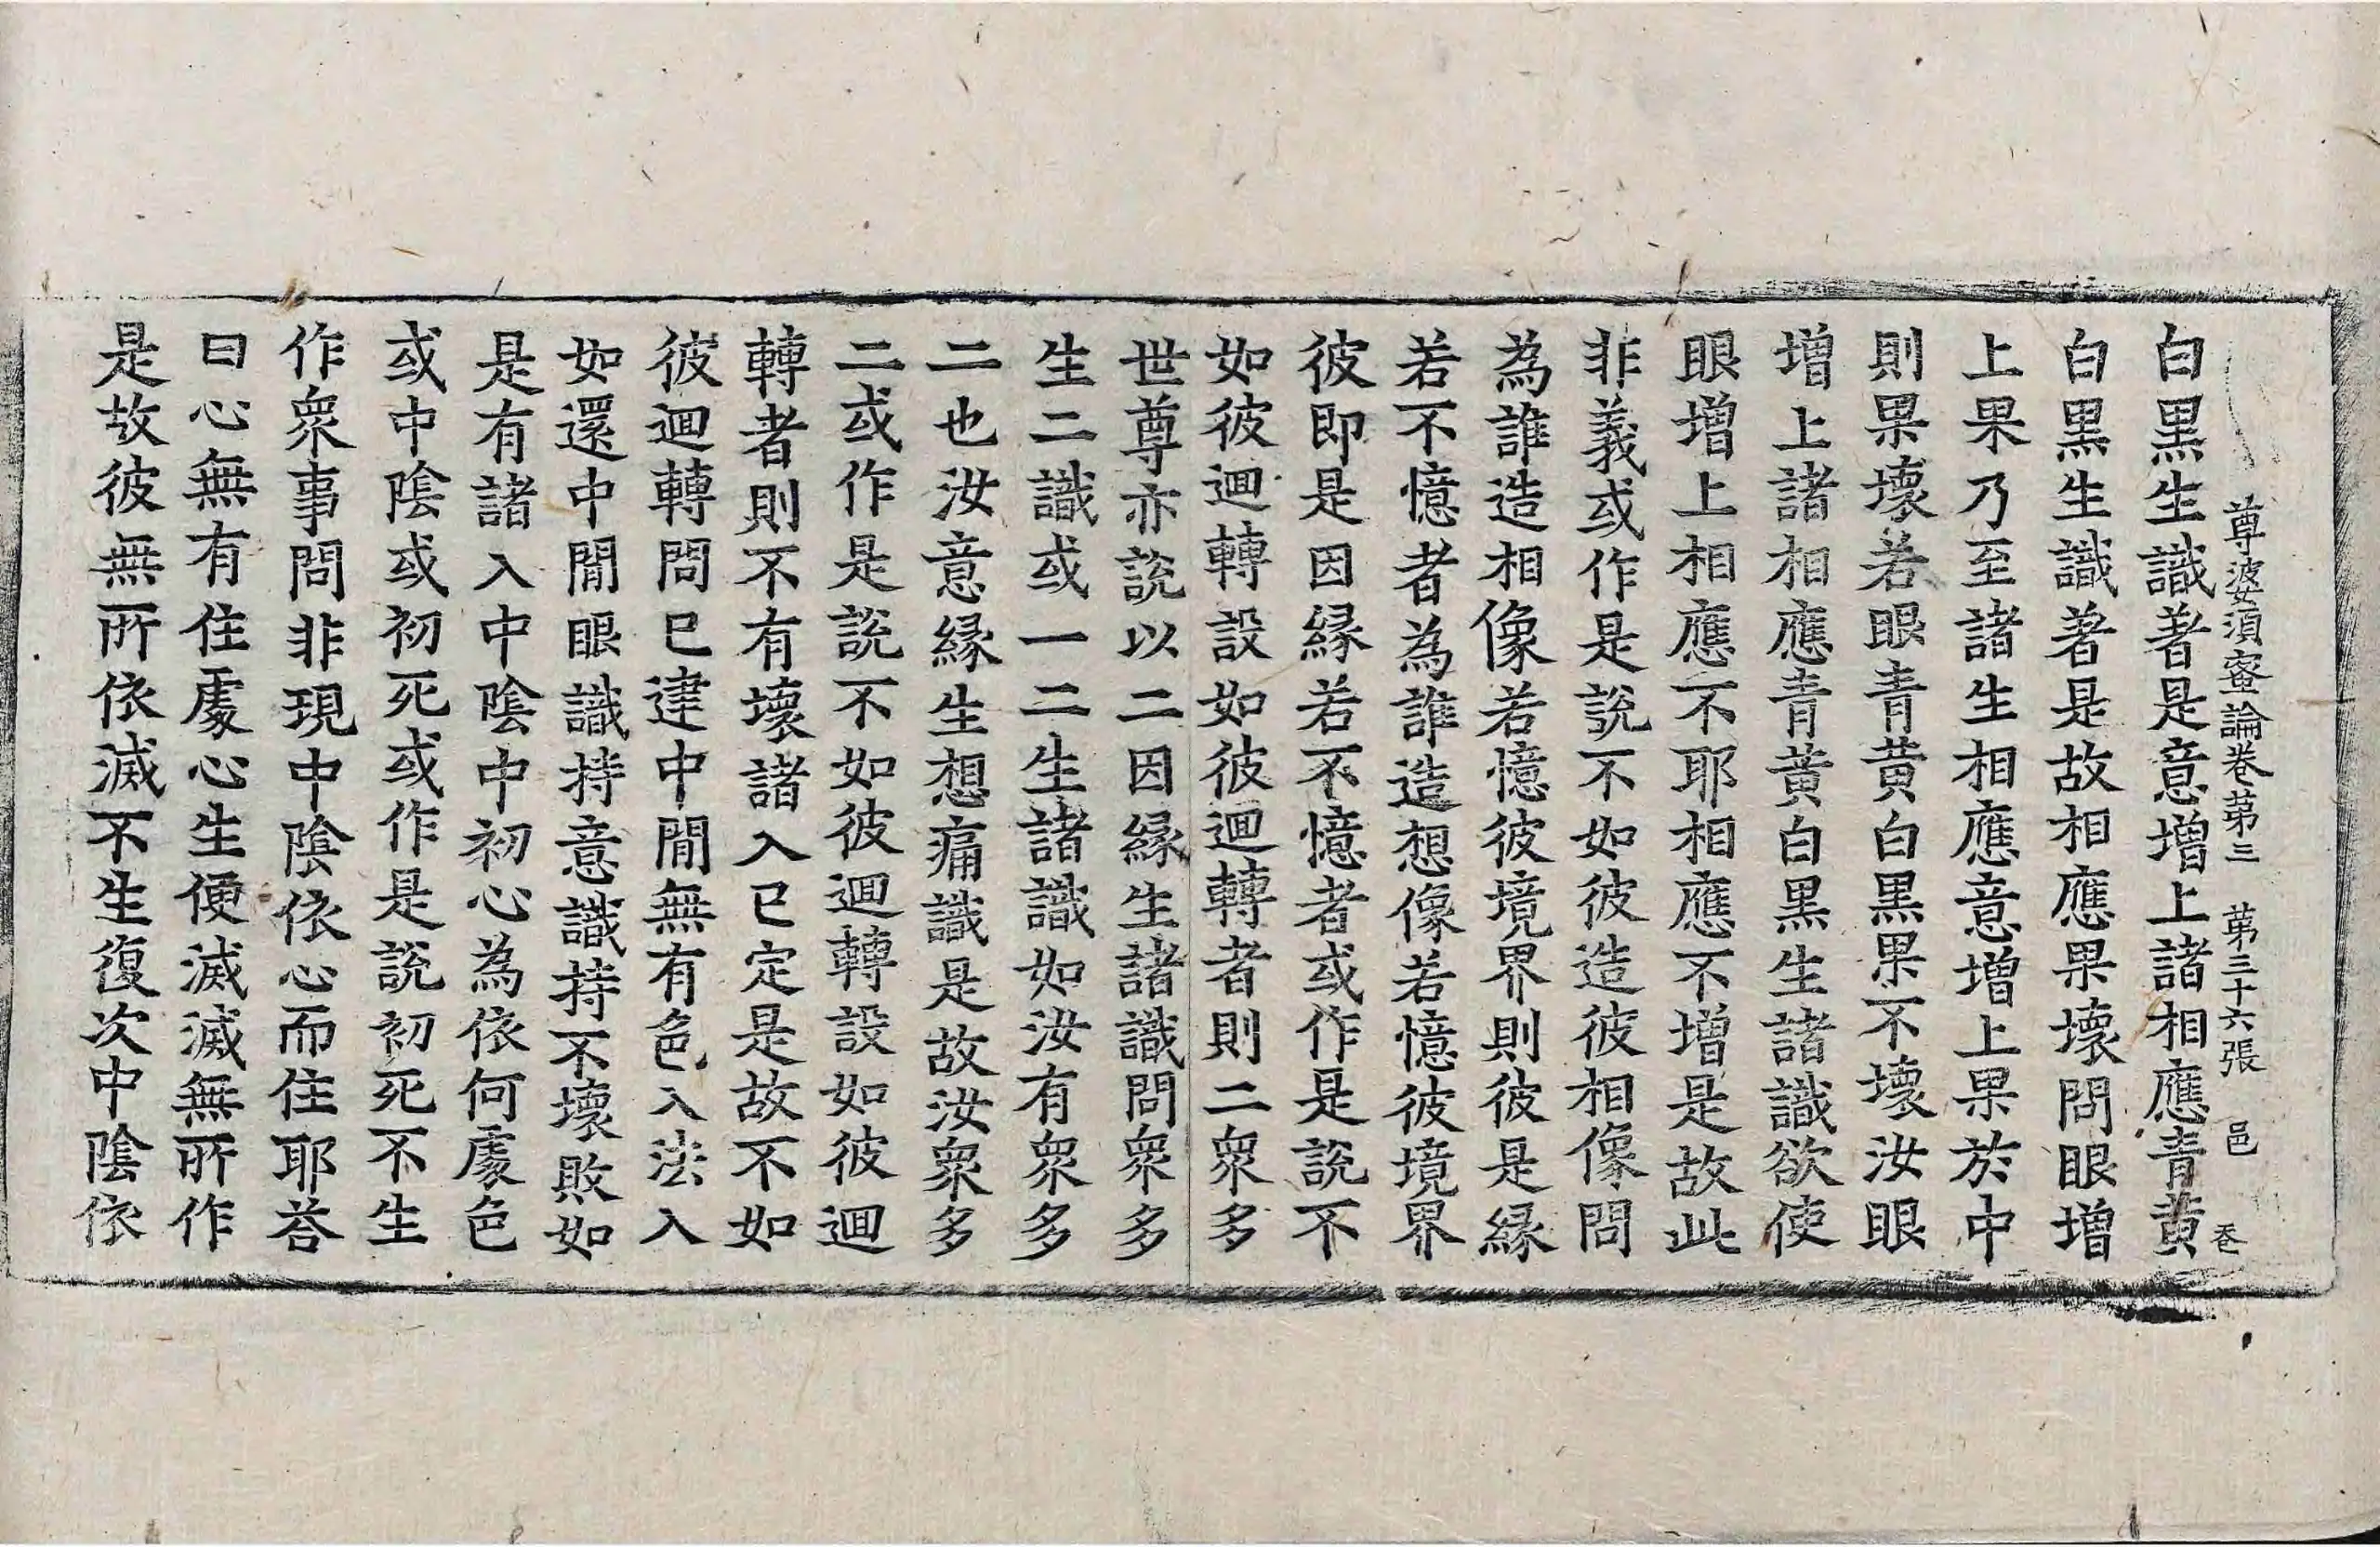 尊婆須蜜論卷第三 第三十六張 邑 卷
白黒生識著是意增上諸相應青黃
白黒生識著是故相應果壞問眼增
上果乃至諸生相應意增上果於中
則果壞若眼青黃白黒果不壞汝眼
增上諸相應青黃白黒生諸識欲使
眼增上相應不耶相應不增是故此
非義或作是說不如彼造彼相像問
為誰造相像若憶彼境界則彼是縁
若不憶者為誰造想像若憶彼境界
彼即是因縁若不憶者或作是說不
如彼迴轉設如彼迴轉者則二衆多
世尊亦說以二因縁生諸識問衆多
生二識或一二生諸識如汝有衆多
二也汝意縁生想痛識是故汝衆多
二或作是說不如彼迴轉設如彼迴
轉者則不有壞諸入已定是故不如
彼迴轉問已建中間無有色入法入
如還中間眼識持意識持不壞敗如
是有諸入中陰中初心為依何處色
或中陰或初死或作是說初死不生
作衆事問非現中陰依心而住耶荅
曰心無有住處心生便滅滅無所作
是故彼無所依滅不生復次中陰依